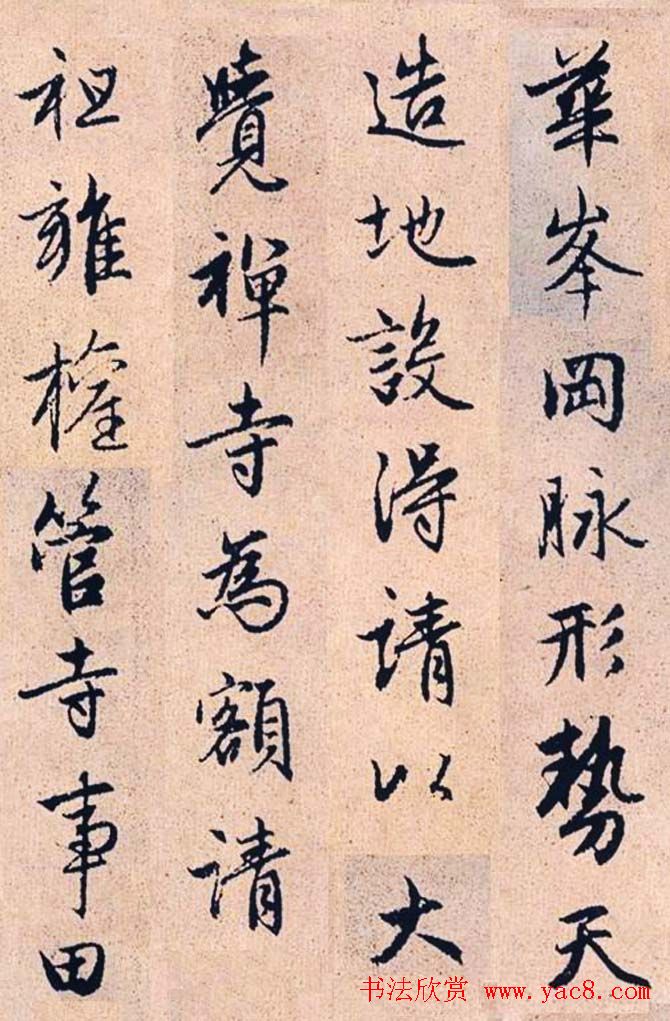 華峯岡脉形勢天
造地設得請以大
覺禪寺為額請
祖雍權管寺事田
书法欣赏 www.yac8.com